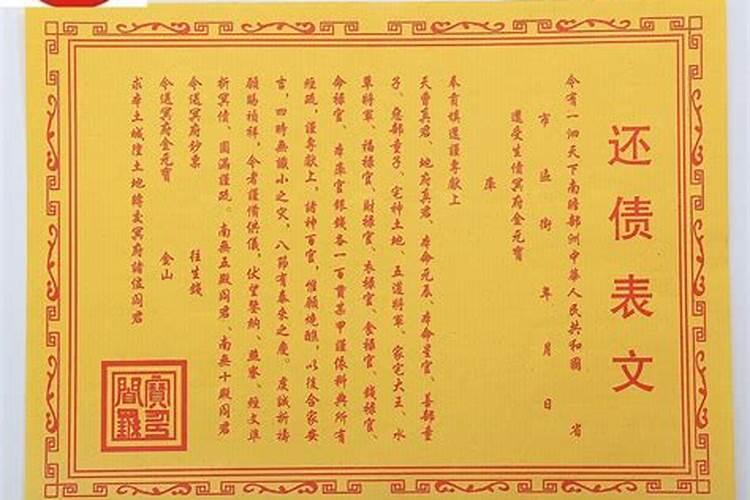 还债表文
今有一泗天下南瞻部洲中華人民共和國 省
市 區 街 年 月 日
還受生債冥府金元寶
庫
奉有填還謹專献上
天曹真君、地府真君、本命元辰、本命星官、善部童
子、惡部童子、宅神土地、五道將軍、家宅大王、水
草將軍、福禄官、財禄官、衣禄官、食禄官、錢禄官、
命禄官、本庫官銀錢各一百貫某甲謹依科典所有
經疏，謹專献上，諸神百官，惟願燒醮，以後合家安
言，四時無識小之灾，八節有泰來之慶。虔誠祈禱
願賜禎祥，令者謹備供儀，伏望鑒納、無 經文準
折冥債、圓滿謹疏。南無五殿阎君、南無十殿阎君
令送冥府钞票 往生錢
令送冥府金元寶 金山
求本土城隍土地轉交冥府諸位阎君